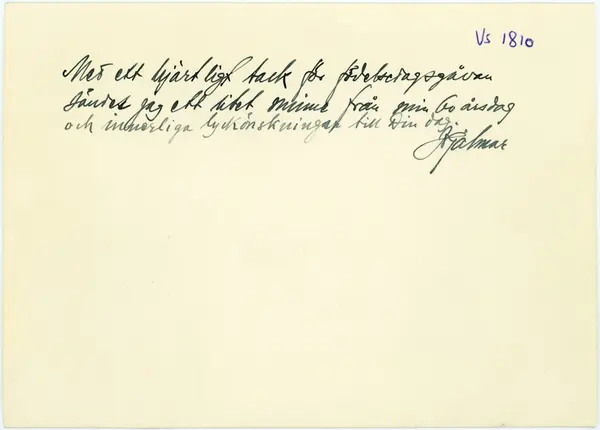 Vs 1810
Med ett hjärtligt tack för födelsedagsgåvan
sändes jag ett litet minne från min 60 årsdag
och innerliga lyckönskningar till Din dag.
Hjalmar